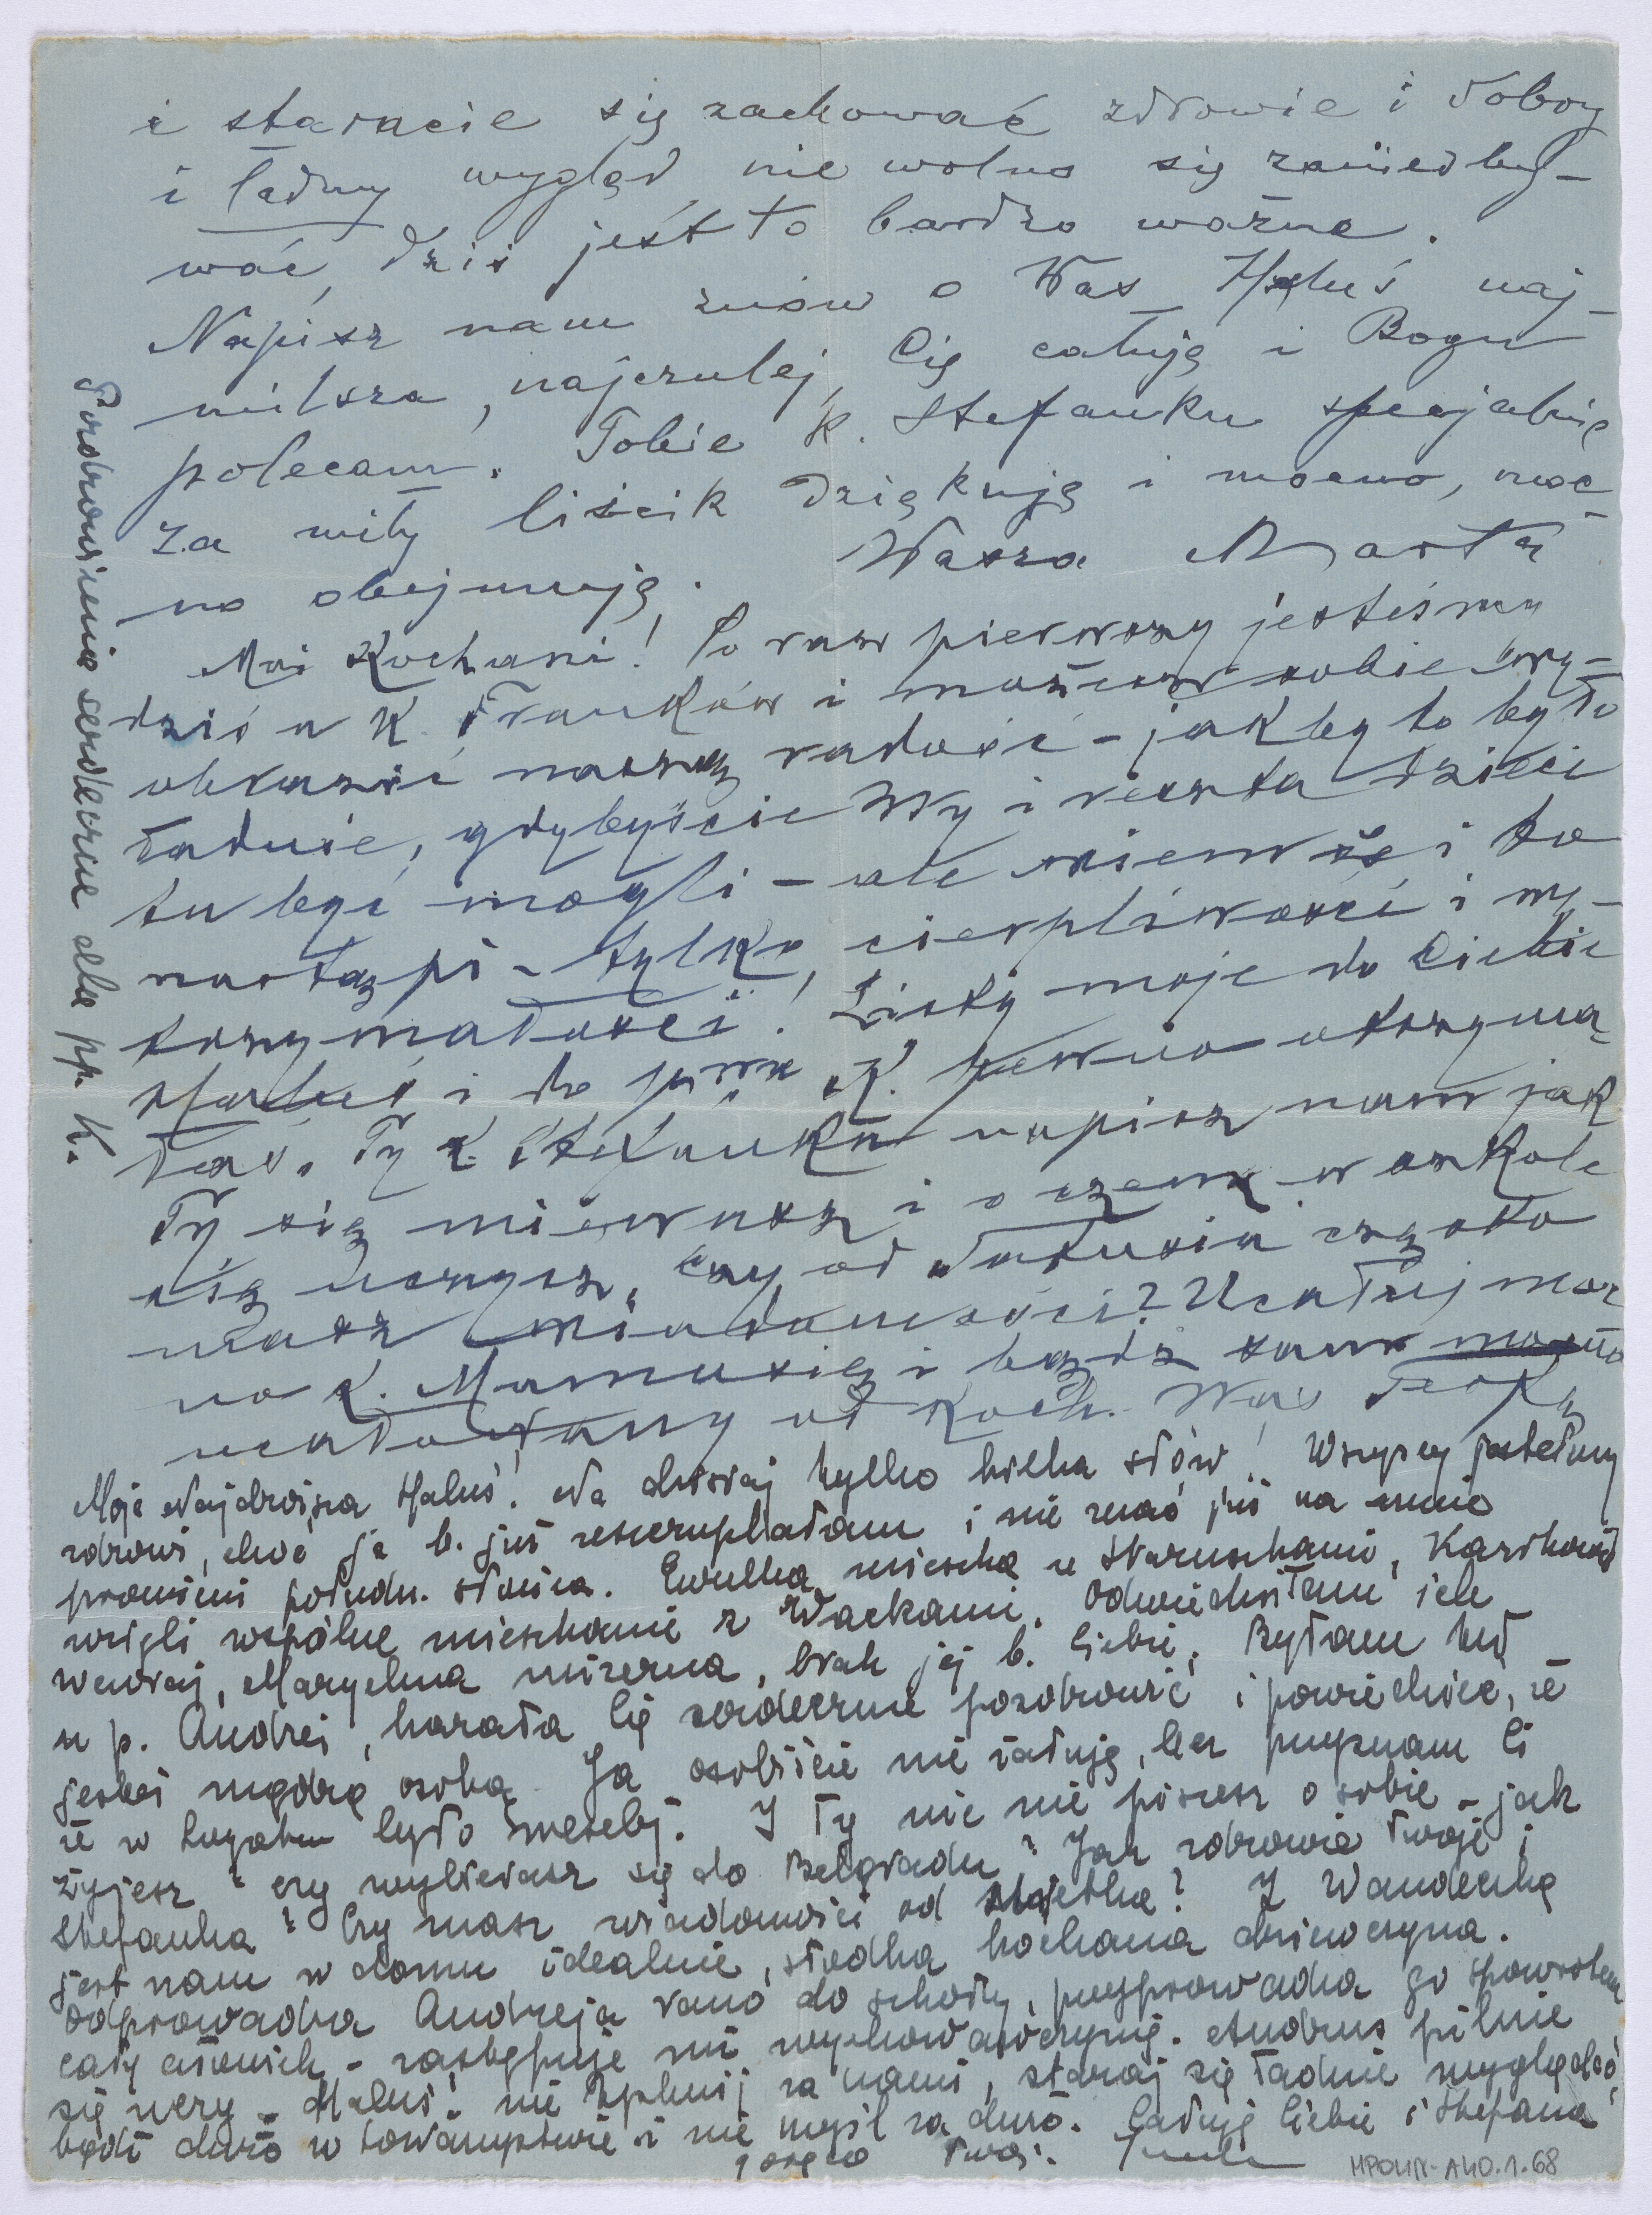 i staracie się zachować zdrowie i dobry
i ładny wygląd nie wolno się zaniedby-
wać, dziś jest to bardzo ważne.
Napisz nam znów o Was Haluś naj-
milsza, najczulej Cię całuję i Bogu
polecam. Tobie k. Stefanku specjalnie
za miły liścik dziękuję i mocno, moc-
no obejmuję. Wasza Marta
Moi Kochani! Po raz pierwszy jesteśmy
dziś u K. Franków i możecie sobie wy-
obrazić naszą radość - jakby to było
ładnie, gdybyście Wy i reszta dzieci
tu być mogli - ale wiem że i to
nastąpi - tylko cierpliwości i wy-
trzymałości! Listy moje do Ciebie
Haluś i do pp. K. pewno otrzyma-
łaś. Ty k. Stefanku napisz nam jak
Ty się miewasz i o czem w szkole
się uczysz, czy od Tatusia często
masz wiadomości? Ucałuj moc
no k. Mamusię i bądź sam mocno
ucałowany od Koch. Was
Moja Najdroższa Haluś! Na dzisiaj tylko kilka słów! Wszyscy jesteśmy
zdrowi, choć ja b. już zeszczuplałam i nie znać już na mnie
promieni połudn. słońca. Ewulka mieszka u Staruszkami,
wzięli wspólne mieszkanie z Wackami. Odwiedziłam ich
wczoraj, Marychna mizerna, brak jej b. Ciebie. Byłam też
u p. Andzei, kazała Cię serdecznie pozdrowić i powiedzieć, że
jesteś mądrą osobą. Ja osobiście nie żałuję, lecz przyznam Ci
że w było weselej. I Ty nic nie piszesz o sobie - jak
żyjesz? czy wybierasz się do Belgradu? Jak zdrowie Twoje i
Stefanka? Czy masz wiadomości od Z Wandeczką
jest nam w domu idealnie, słodka kochana dziewczyna.
Odprowadza Andrzeja rano do szkoły, przyprowadza go spowrotem
cały - zastępuje mi wychowawczynię. Andrus pilnie
się uczy - Haluś! nie tęsknij za nami, staraj się ładnie wyglądać,
bądź dużo w towarzystwie i nie myśl za dużo. Całuję Ciebie i Stefana
gorąco Twoja
Pozdrowienia serdeczne dla pp. K.
MPOLIN-A40.1.68